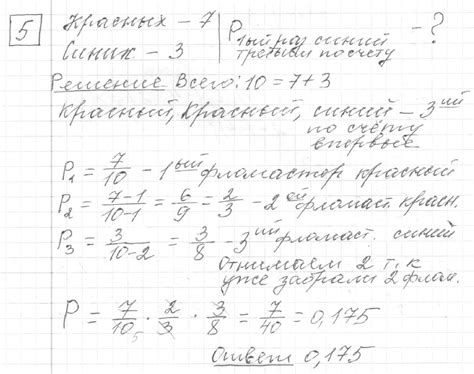 5 Красных – 7 | P 1ый раз синий третьим по счёту – ?
Синих – 3
Решение Всего: 10 = 7 + 3
Красный, Красный, синий – 3ий
по счёту
впервые
P₁ = 7/10 – 1ый фломастер красный
P₂ = (7-1)/(10-1) = 6/9 = 2/3 – 2ой фломаст. красн.
P₃ = 3/(10-2) = 3/8 – 3ий фломаст. синий
Отнимаем 2 т.к
уже забрали 2 флом.
P = 7/10 · 2/3 · 3/8 = 7/40 = 0,175
5
Ответ 0,175